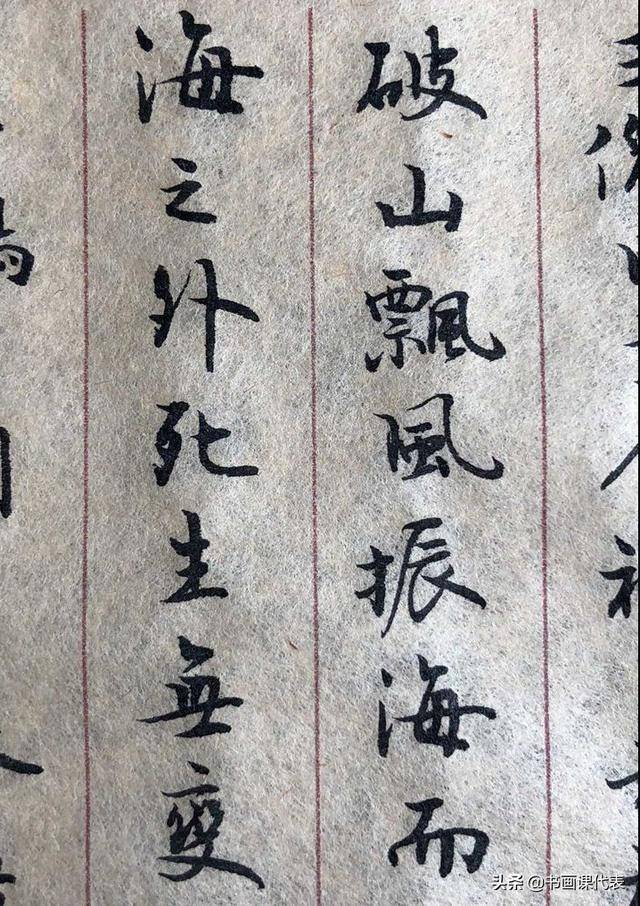 破山飄風振海而
海之外死生無變
头条 @书画课代表